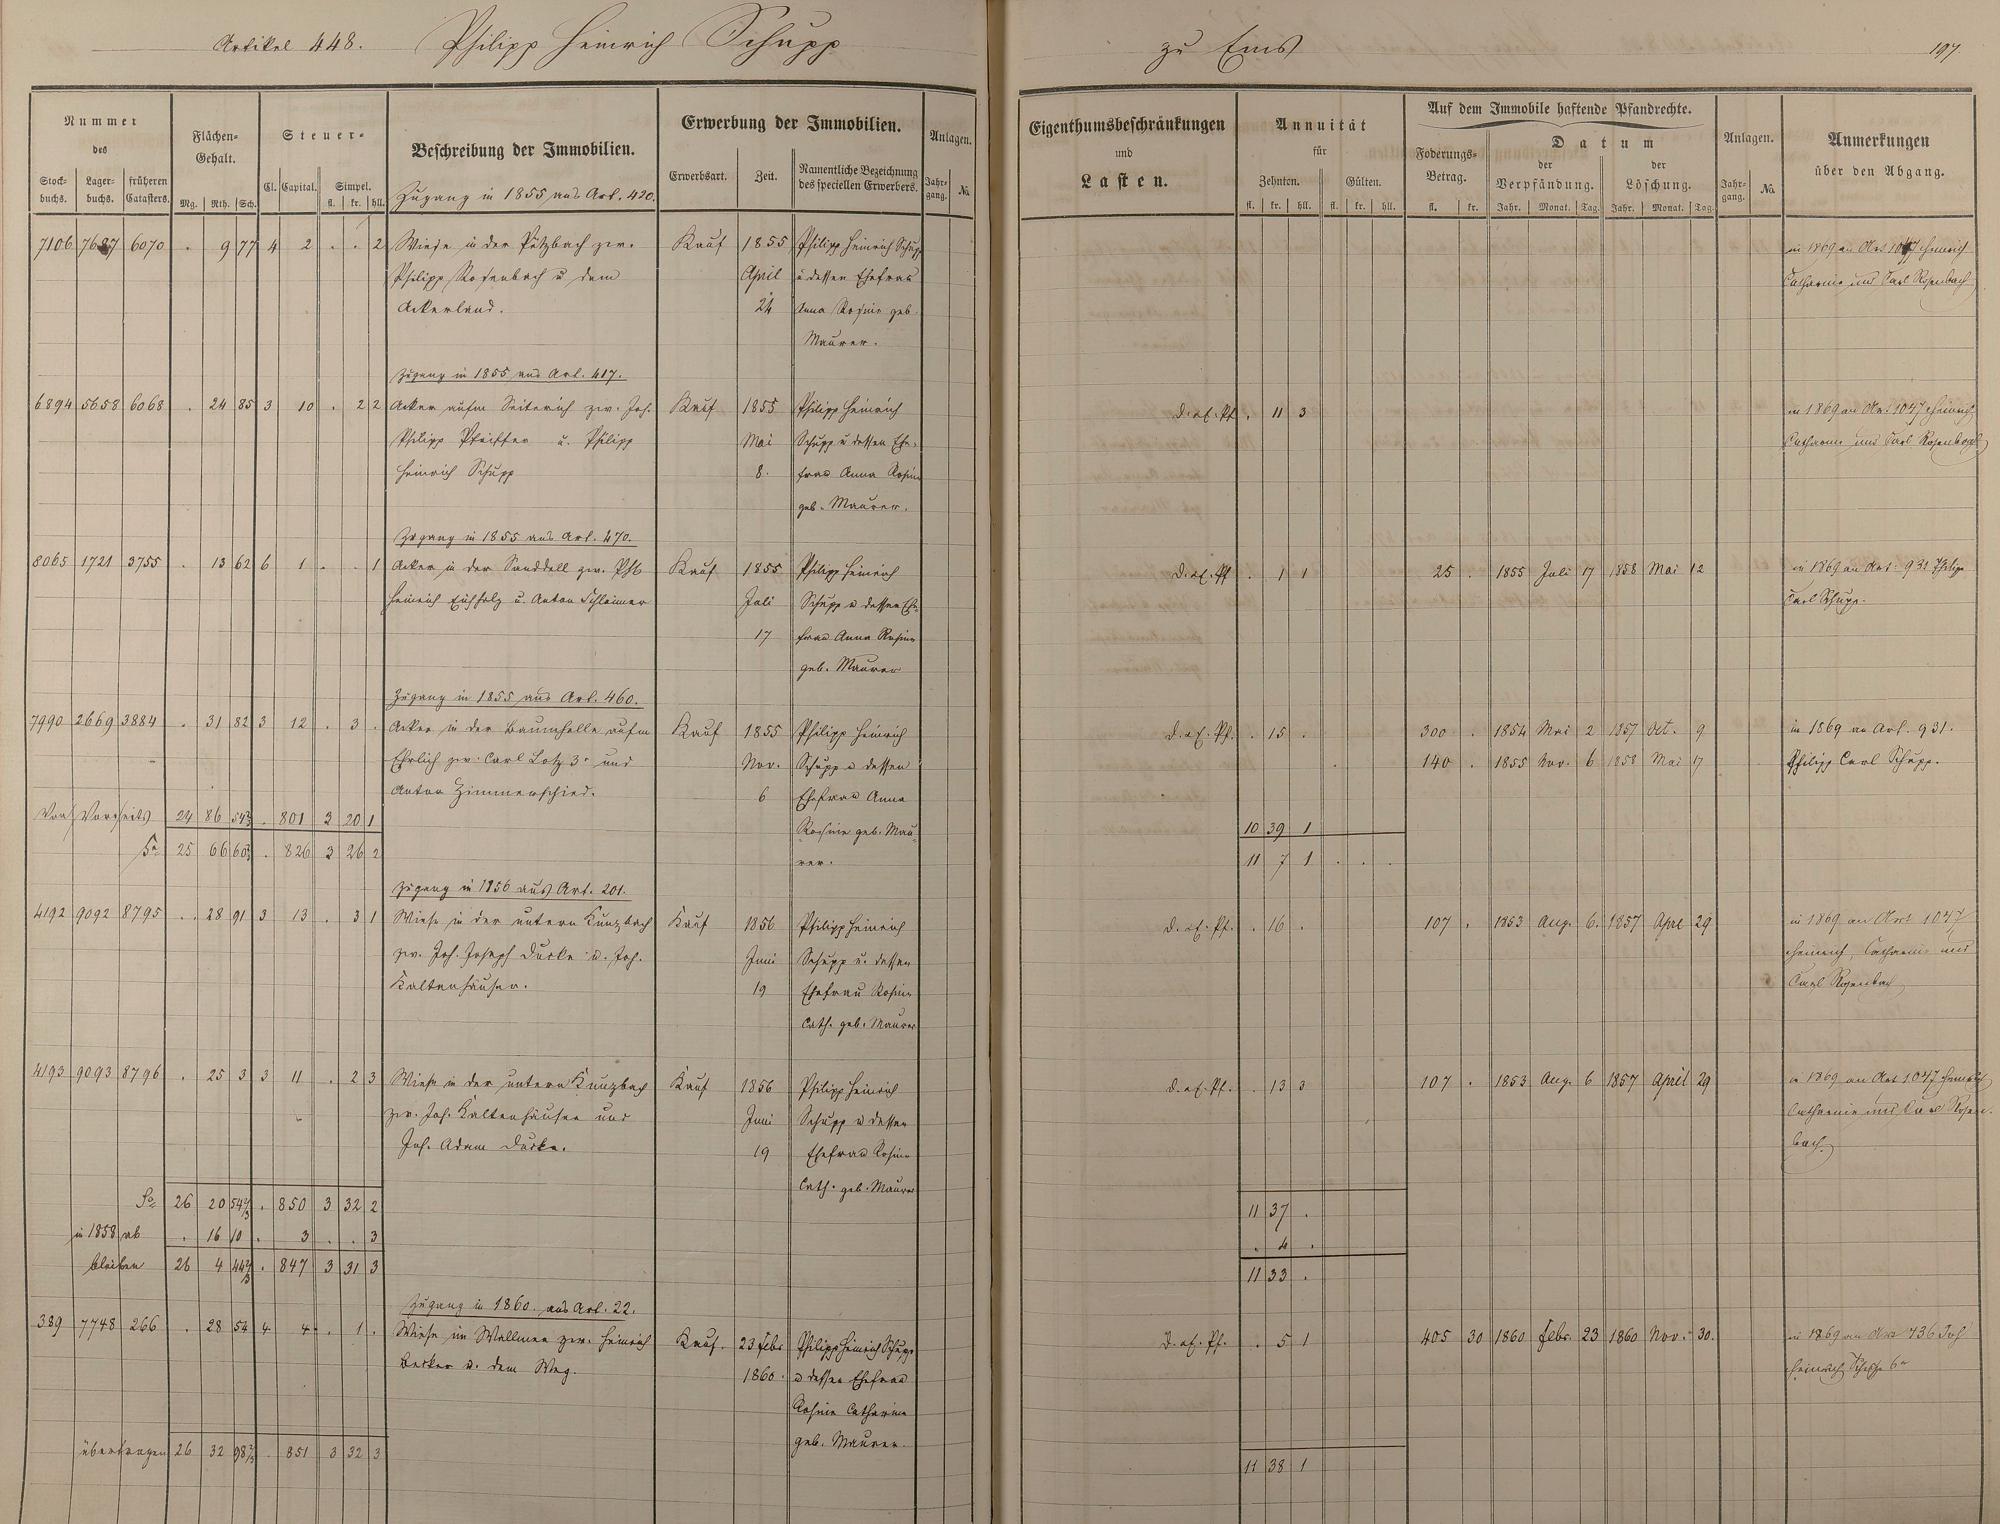 Artikel 448. Philipp Heinrich Schupp zu Ems 197.
Nummer des
Stock-buchs. Lager-buchs. früheren Catasters.
Flächen-Gehalt.
Mg. Rth. Sch.
Steuer-
Cl. Capital. Simpel.
fl. kr. hll.
Beschreibung der Immobilien.
Erwerbung der Immobilien.
Erwerbsart. Zeit. Namentliche Bezeichnung des speciellen Erwerbers.
Anlagen.
Jahr-gang. No.
Eigenthumsbeschränkungen
und
Lasten.
Annuität
für
Zehnten. Gülten.
fl. kr. hll. fl. kr. hll.
Auf dem Immobile haftende Pfandrechte.
Foderungs-Betrag.
fl. kr.
Datum
der Verpfändung. der Löschung.
Jahr. Monat. Tag. Jahr. Monat. Tag.
Anlagen.
Jahr-gang. No.
Anmerkungen
über den Abgang.
Zugang in 1855 aus Art. 420.
7106 7687 6070 . 9 77 4 2 . . 2 Wiese in der Pützbach zw. Kauf 1855 Philipp Heinrich Schupp in 1869 an Art 1047 Heinrich
Philipp Rosenbach u dem April u dessen Ehefrau Catharine und Carl Rosenbach
Ackerland. 24 Anna Rosine geb.
Maurer.
Zugang in 1855 aus Art. 417.
6894 5658 6068 . 24 85 3 10 . 2 2 Acker aufm Seiterich zw. Joh. Kauf 1855 Philipp Heinrich D. af. Pf. . 11 3 in 1869 an Art 1047 Heinrich
Philipp Pfeiffer u. Philipp Mai Schupp u dessen Ehe- Catharine und Carl Rosenbach
Heinrich Schupp 8. frau Anna Rosine
geb. Maurer.
Zugang in 1855 aus Art. 470.
8065 1721 3755 . 13 62 6 1 . . 1 Acker in der Sanddell zw. Phl Kauf 1855 Philipp Heinrich D. af. Pf. . 1 1 25 . 1855 Juli 17 1858 Mai 12 in 1869 an Art. 932 Philipp
Heinrich Eichholz u. Anton Schleimer Juli Schupp u dessen Ehe- Carl Schupp.
17 frau Anna Rosine
geb. Maurer
Zugang in 1855 aus Art. 460.
7990 2669 3884 . 31 82 3 12 . 3 . Acker in der Baumhelle aufm Kauf 1855 Philipp Heinrich D. af. Pf. . 15 . 300 . 1854 Mai 2 1857 Oct. 9 in 1869 an Art. 931.
Ehrlich zw. Carl Lotz 3r und Nov. Schupp u dessen 140 . 1855 Nov. 6 1858 Mai 17 Philipp Carl Schupp.
Anton Zimmerschied. 6 Ehefrau Anna
Von Vorseits 24 86 54 2/3 . 801 3 20 1 Rosine geb. Mau- 10 39 1
Sa 25 66 60 2/3 . 826 3 26 2 rer. 11 7 1 . . .
Zugang in 1856 aus Art. 201.
4192 9092 8795 . . 28 91 3 13 . 3 1 Wiese in der untern Kunzbach Kauf 1856 Philipp Heinrich D. af. Pf. . 16 . 107 . 1853 Aug. 6. 1857 April 29 in 1869 an Art 1047
zw. Joh. Joseph Ducke u. Joh. Juni Schupp u. dessen Heinrich, Catharine und
Kaltenhäuser. 19 Ehefrau Rosine Carl Rosenbach
Cath. geb. Maurer
4193 9093 8796 . 25 3 3 11 . 2 3 Wiese in der untern Kunzbach Kauf 1856 Philipp Heinrich D. af. Pf. . 13 3 107 . 1853 Aug. 6 1857 April 29 in 1869 an Art 1047 Heinrich
zw. Joh. Kaltenhäuser und Juni Schupp u dessen Catharine und Carl Rosen-
Joh. Adam Ducke. 19 Ehefrau Rosine bach.
Cath. geb. Maurer
Sa 26 20 54 2/3 . 850 3 32 2 11 37 .
in 1858 ab . 16 10 . 3 . . 3 . 4 .
bleiben 26 4 44 2/3 . 847 3 31 3 11 33 .
Zugang in 1860. aus Art. 22.
389 7748 266 . 28 54 4 4 . 1 . Wiese im Wallmen zw. Heinrich Kauf. 23 Febr Philipp Heinrich Schupp D. af. Pf. . 5 1 405 30 1860 Febr. 23 1860 Nov. 30. in 1869 an Art 736 Joh
Becker u. dem Weg. 1860. u dessen Ehefrau Heinrich
Rosine Catharine
geb. Maurer.
übertragen 26 32 98 2/3 . 851 3 32 3 11 38 1